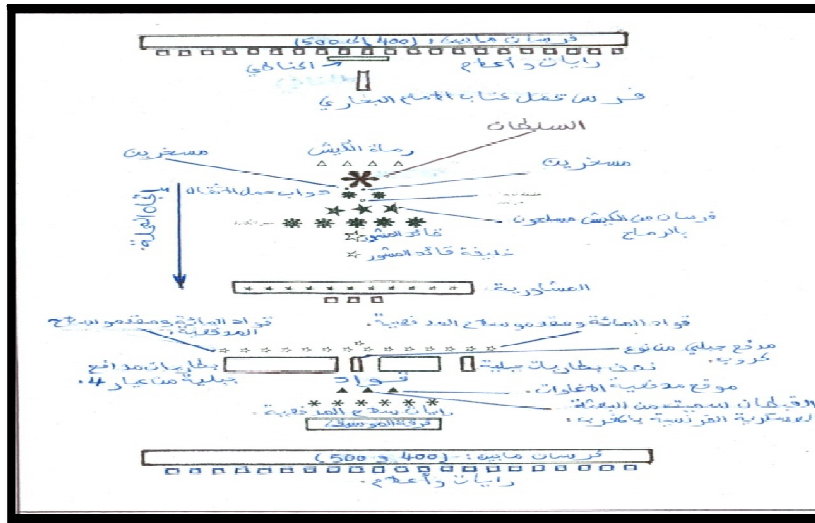 فرسان مابين: (400 إلى 500)
رايات وأعلام
الحناطي
فرس تحمل كتاب الامام البخاري
السلطان
رماة الكيش
مسخرين
مسخرين
دواب حمل الأثقال
اتجاه المحلة
فرسان من الكيش مسلحون
بالرماح
قائد المشور
خليفة قائد المشور
المشاورية
قواد المائة ومقدمو سلاح المدفعية.
قواد المائة ومقدمو سلاح
المدفعية.
مدفع جبلي من نوع
كروب.
بطاريات مدافع
جبلية من عيار 4.
نصف بطاريات جبلية
قواد
موقع مدفعية
القبطان من البعثة
العسكرية الفرنسية بالمغرب.
رايات سلاح المدفعية.
فرقة الموسيقى
فرسان مابين: (400 و 500)
رايات وأعلام.